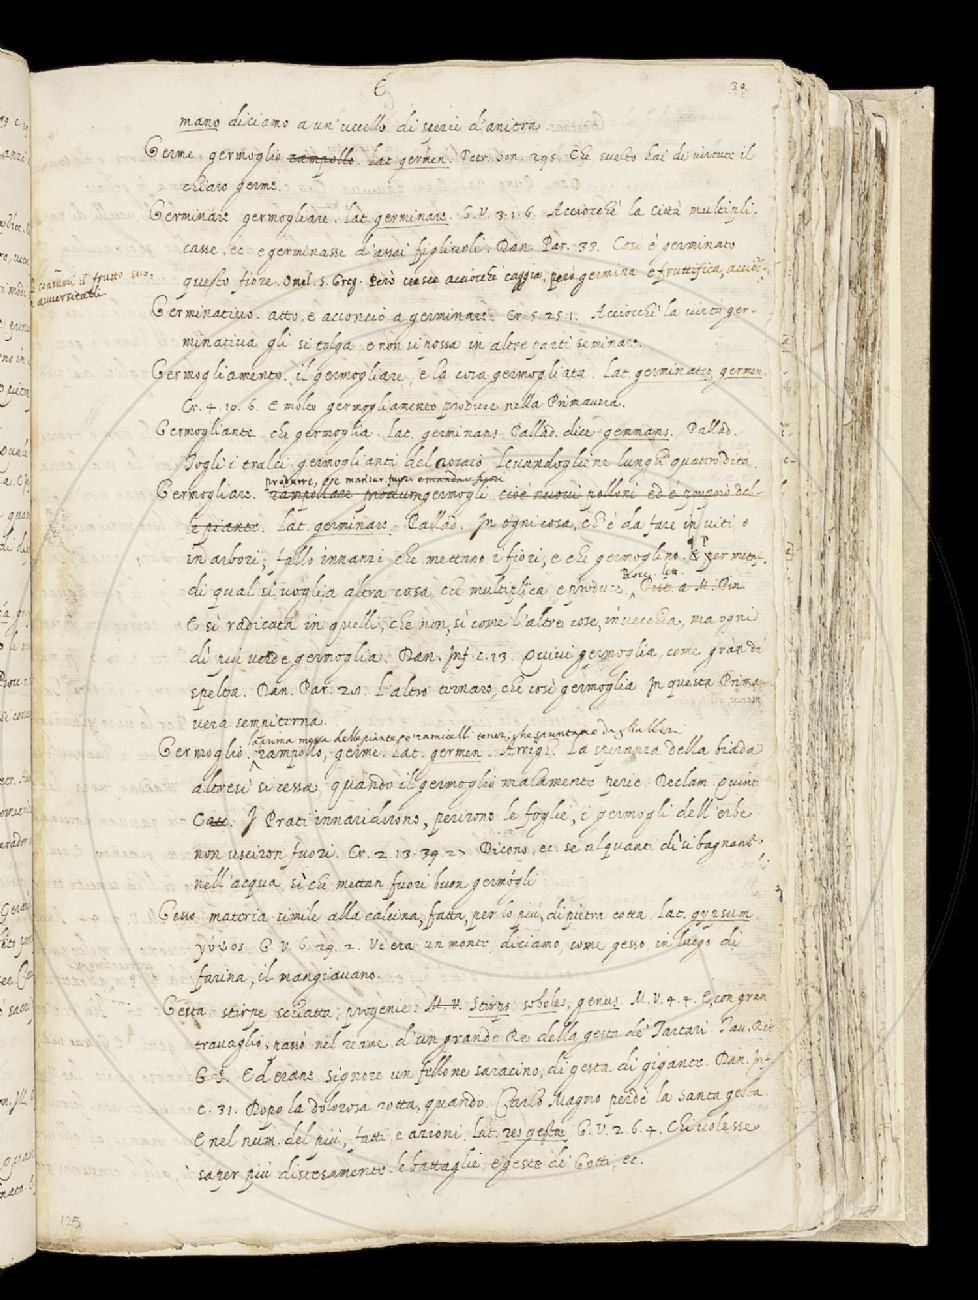 G
30
mano diciamo a un' uccello di spezie d'anitra.
Germe. germoglio rampollo. Lat. germen. Petr. Son. 295. Che svelto hai di virtute il
chiaro germe.
Germinare germogliare. Lat. germinare. G. V. 3. 1. 6. Acciocchè la Città multipli-
casse, ec. e germinasse d'assai figliuoli. Dan. Par. 33. Così è germinato
questo fiore. Omel. S. Greg. Però cresce acciocchè caggia, però germina e fruttifica, accioc-
consumi il frutto suo.
avversitati
Germinativo. atto, e acconcio a germinare. Cr. 5. 25. 1. Acciocchè la virtù ger-
minativa gli si tolga e non si possa in altre parti seminare.
Germogliamento. il germogliare, e la cosa germogliata. Lat. germinatio, germen
Cr. 4. 10. 6. E molto germogliamento produce nella Primavera.
Germogliante. che germoglia. Lat. germinans. Pallad. dice gemmans. Pallad.
Togli i tralci germoglianti del rosaio levandogliene lunghi quattro dita.
produrre, e mandar fuori
Germogliare. rampollare germogli, cioè nuovi polloni ed è proprio del-
le piante. Lat. germinare. Pallad. In ogni cosa, ch'è da fare in viti o
in arbori, fallo innanzi che mettano i fiori, e che germoglino. & P per metaf.
di qual si voglia altra cosa, che multiplica e produce.
E sì radicata in quelli, che non, sì come l'altre cose, invecchia, ma ogni
dì più verde germoglia. Dan. Inf. c. 13. Quivi germoglia, come gran di
spelta. Dan. Par. 28. L'altro ternaro, che così germoglia In questa Prima-
vera sempiterna.
la prima messa delle piante, o ramicelli teneri, che spuntano
Germoglio. rampollo, germe. Lat. germen. Arrigh. La speranza della biada
altresì si cessa, quando il germoglio malamente perie. Declam. Quint.
C. I Prati innaridirono, perirono le foglie, i germogli dell'erbe
non usciron fuori. Cr. 2. 13. 27. Dicono, ec. se alquanti dì si bagnano
nell'acqua, sì che mettan fuori buon germogli
Gesso. materia simile alla calcina, fatta, per lo più, di pietra cotta. Lat. gypsum.
γύψος. G. V. 6. 29. 2. Vi era un monte, diciamo, come gesso, in luogo di
farina, il mangiavano.
Gesta. stirpe schiatta, progenie. M. V. Stirps, soboles, genus. M. V. 4. 4. E, con gran
travaglio, passò nel reame d'un grande Re della gesta de' Tartari. Tav. Rit.
G. S. Ed erane signore un fellone saracino, di gesta di gigante. Dan. Inf.
c. 31. Dopo la dolorosa rotta, quando Carlo Magno perdè la santa gesta.
E nel num. del più, fatti e azioni. Lat. res gestæ. G. V. 2. 6. 4. Chi volesse
saper più distesamente le battaglie, e geste de' Gotti, ec.
125